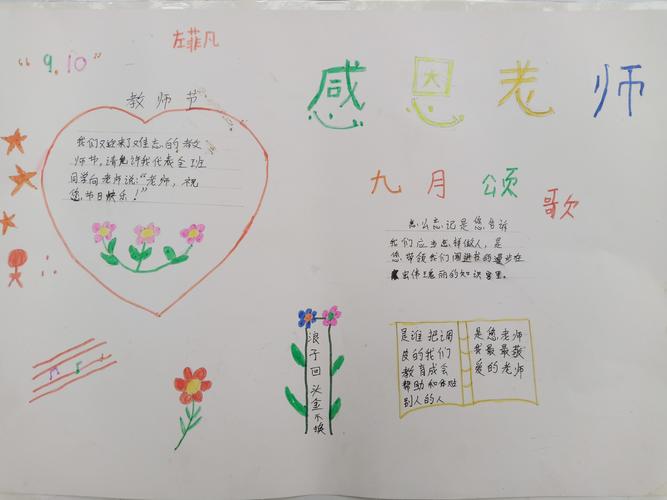 “9.10”
左菲凡
教师节
我们又迎来了难忘的教
师节，请允许我代表全班
同学向老师说：“老师，祝
您节日快乐！”
感恩老师
九月颂歌
怎么忘记是您告诉
我们应当怎样做人，是
您带领我们闯进我的漫步在
宏伟瑰丽的知识宫里。
浪子回头金不换
是谁把调
皮的我们
教育成会
帮助和体贴
别人的人
是您，老师
我最最敬
爱的老师